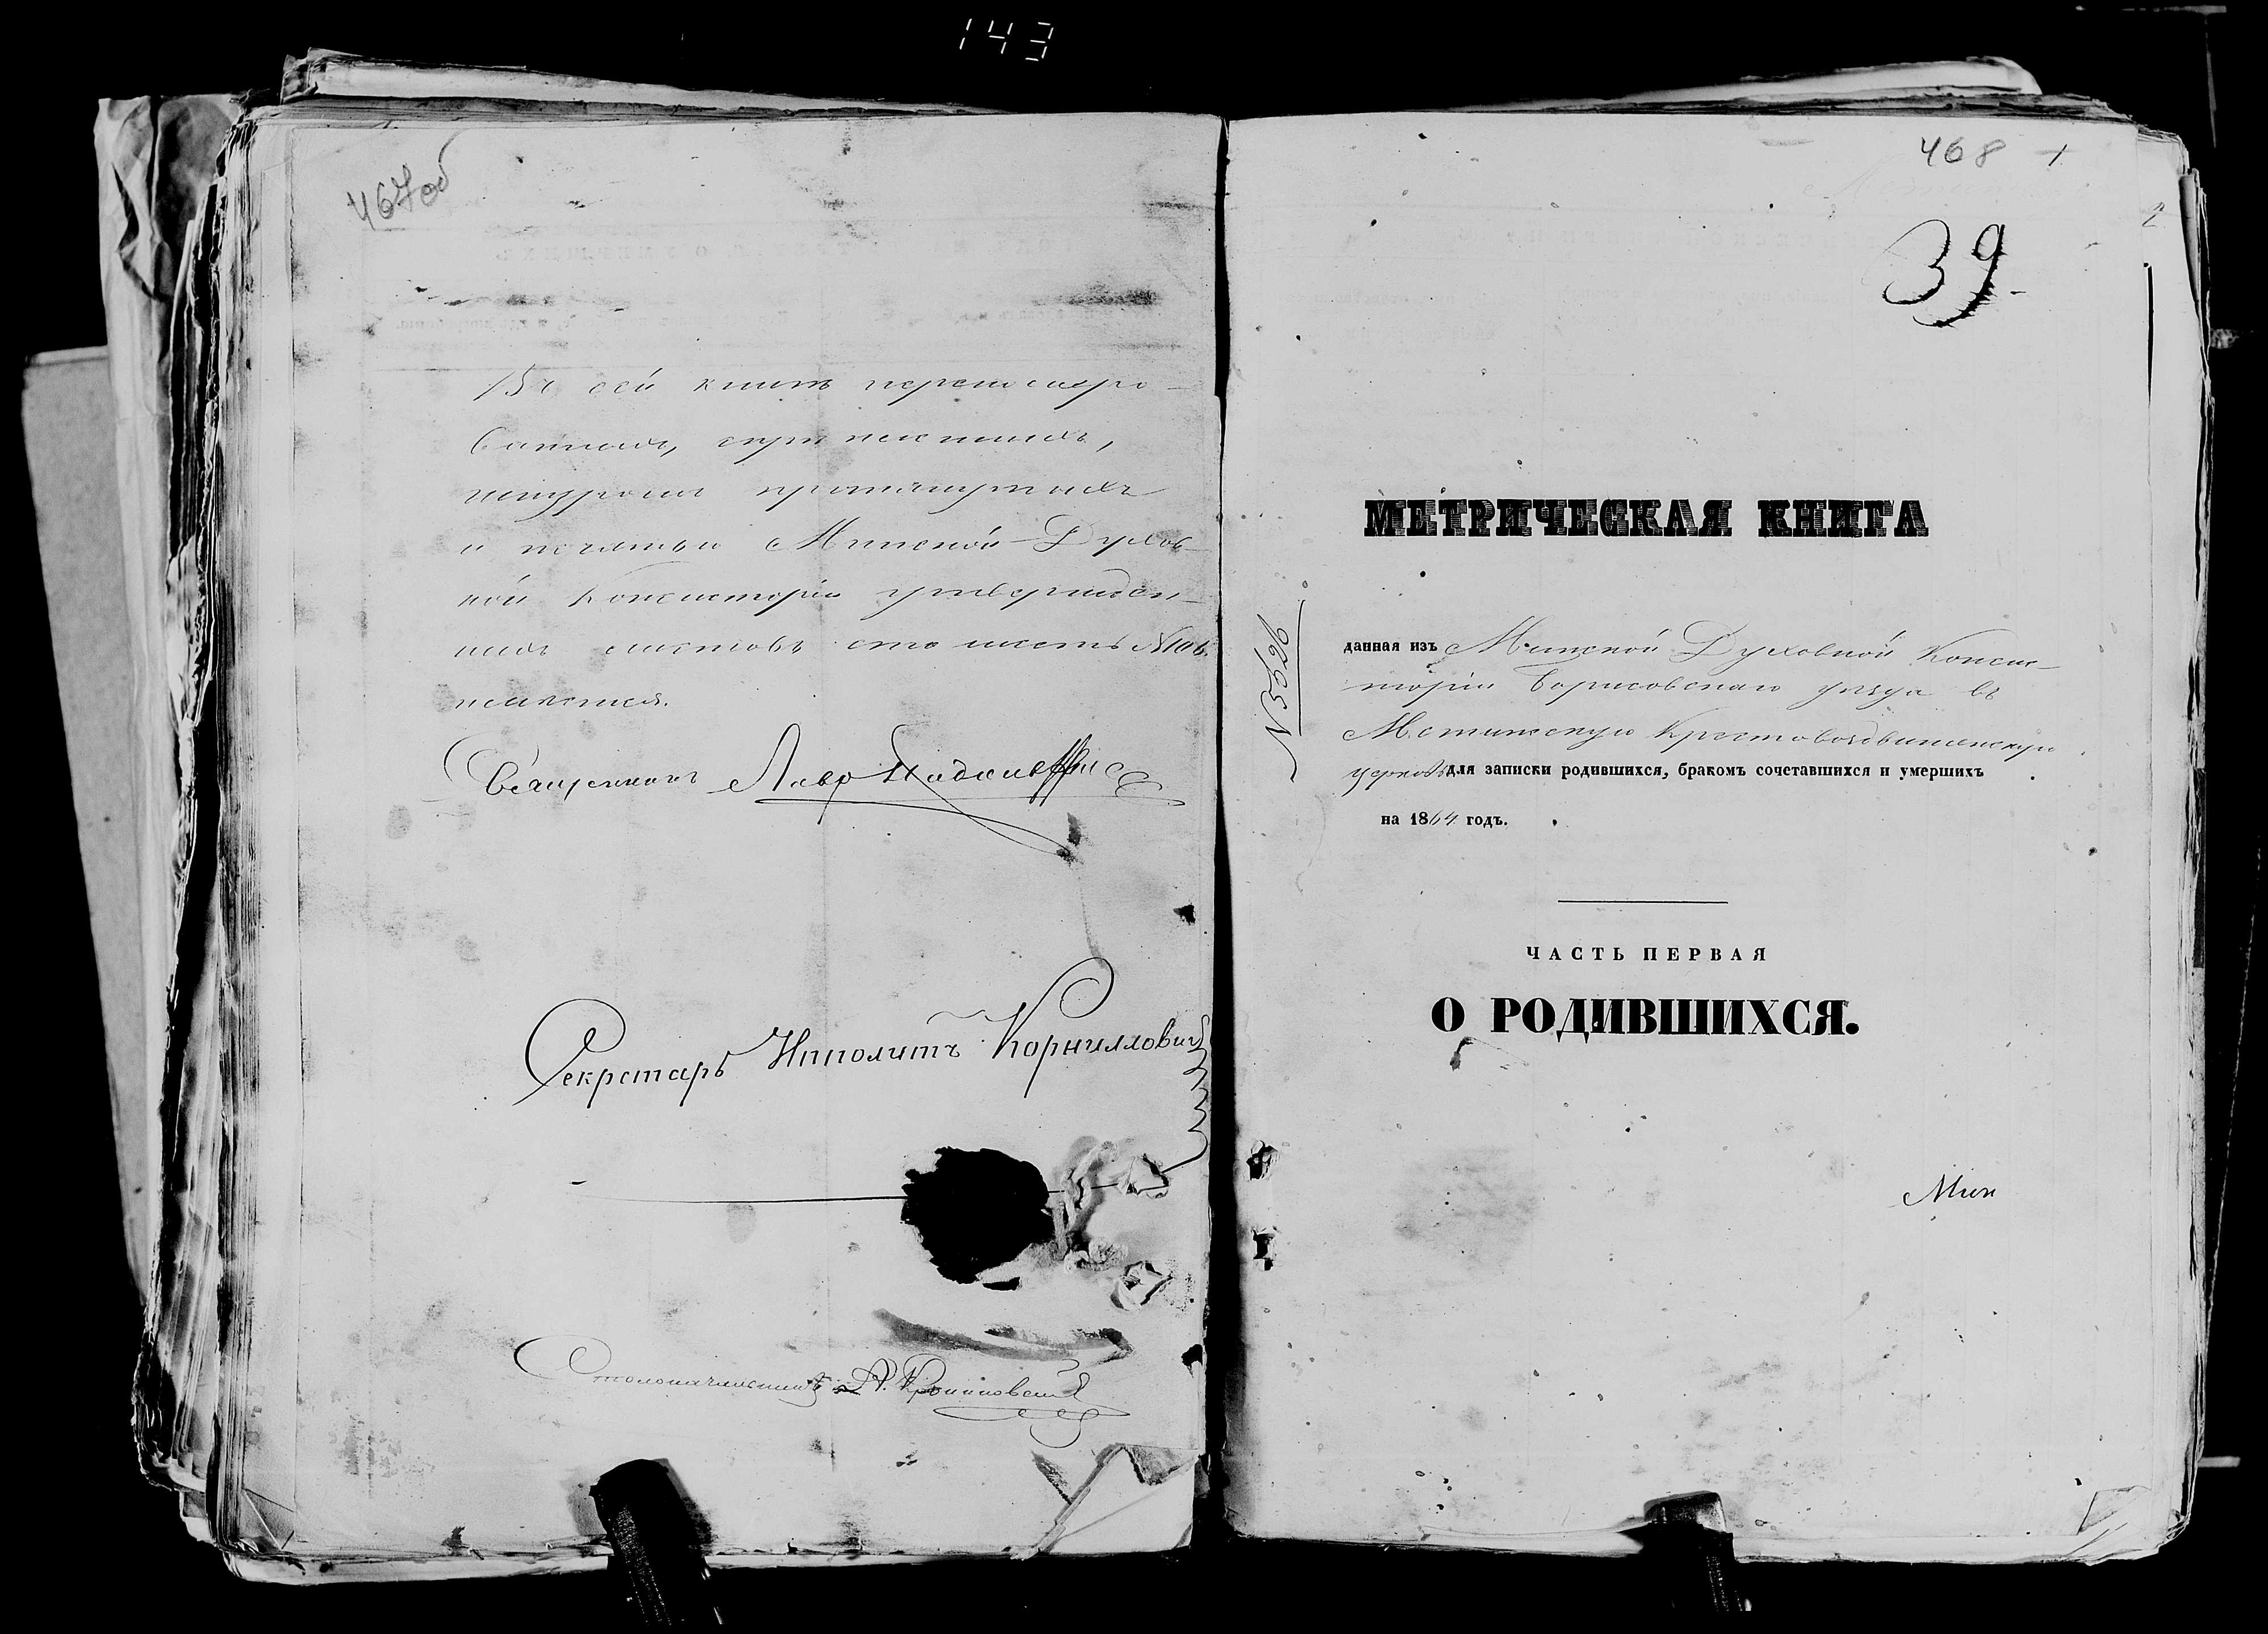 143
467об
Въ сей книгѣ перенумеро-
ванныхъ, скрѣпленныхъ,
шнуромъ протянутыхъ
и печатью Минской Духов-
ной Консисторіи утвержден-
ныхъ листовъ сто шесть №106.
имѣется.
Священникъ Лавр
Секретарь Ипполитъ Корниловичъ
Столоначальникъ
468 1
2
39.
МЕТРИЧЕСКАЯ КНИГА
№ 5526
данная изъ Минской Духовной Консис-
торіи Борисовскаго уѣзда въ
Мстижскую Крестовоздвиженскую
церковь для записки родившихся, бракомъ сочетавшихся и умершихъ
на 1864 годъ.
ЧАСТЬ ПЕРВАЯ
О РОДИВШИХСЯ.
Мин